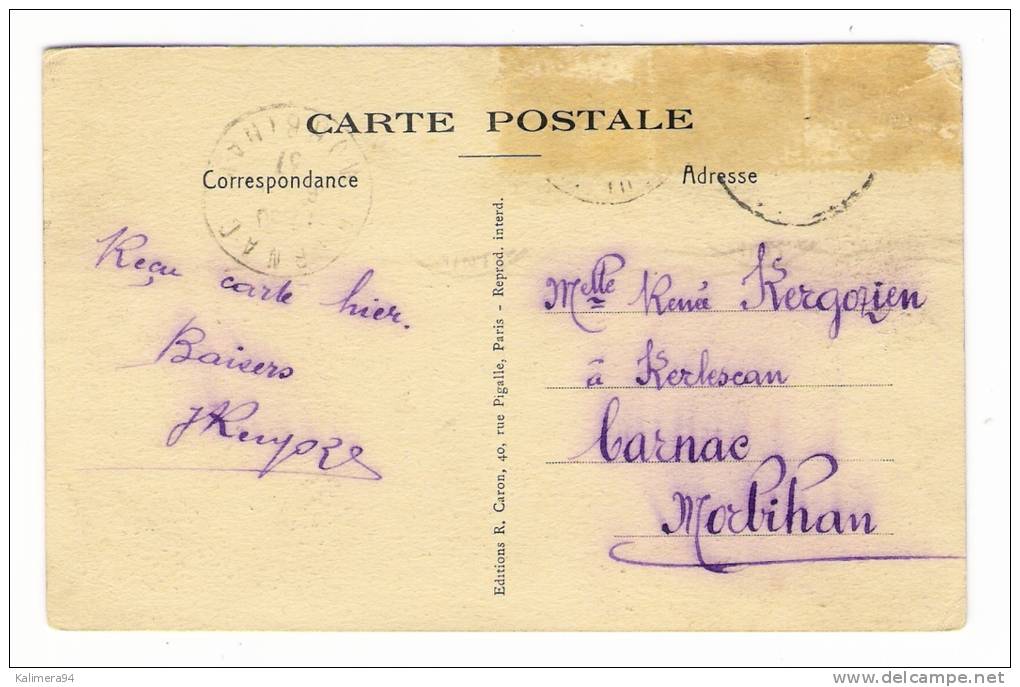 CARTE POSTALE
Correspondance
Adresse
CARNAC
Reçu carte hier.
Baisers
Editions R. Caron, 40, rue Pigalle, Paris - Reprod. interd.
Melle René Kergozien
à Kerlescan
Carnac
Morbihan
Kalimera94
www.delcampe.net